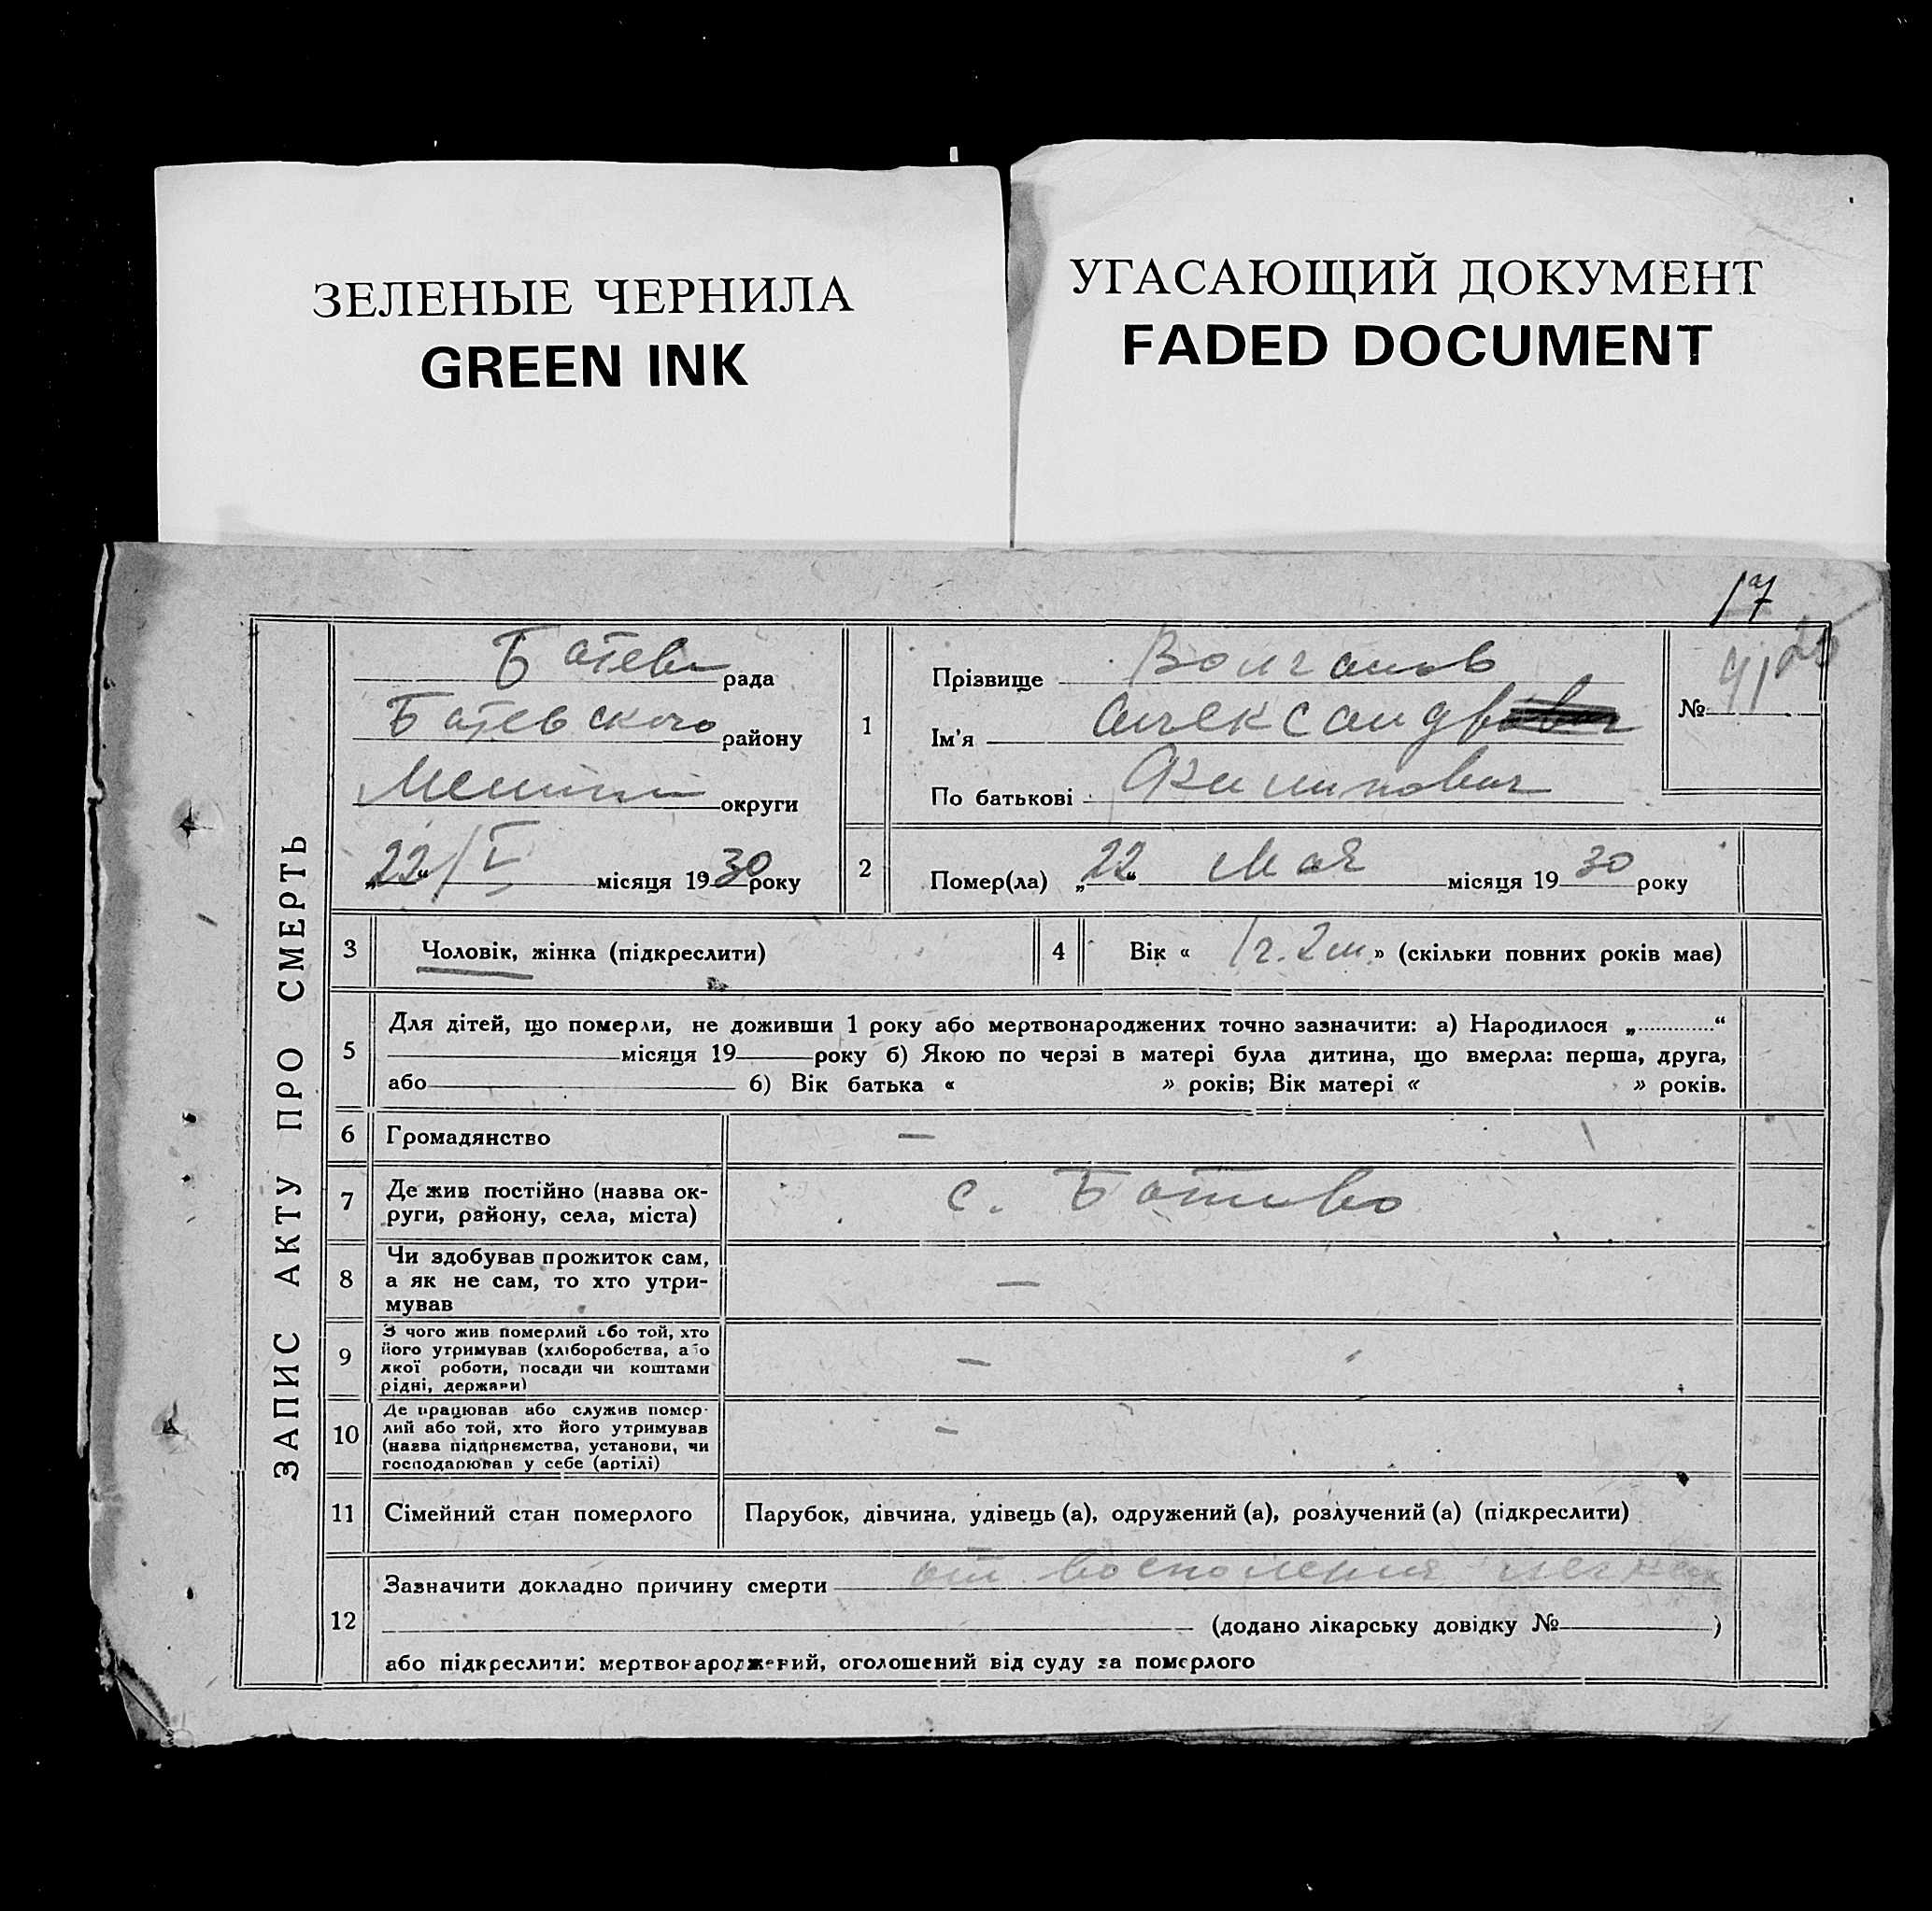 ЗЕЛЕНЫЕ ЧЕРНИЛА
GREEN INK
УГАСАЮЩИЙ ДОКУМЕНТ
FADED DOCUMENT
17
ЗАПИС АКТУ ПРО СМЕРТЬ
рада
району
округи
„22“ / V місяця 1930 року
1
Прізвище
Ім'я Александр
По батькові
№
2
Помер(ла) „22“ Мая місяця 1930 року
3 Чоловік, жінка (підкреслити)
4 Вік « 1 г. 2 м. » (скільки повних років має)
5
Для дітей, що померли, не доживши 1 року або мертвонароджених точно зазначити: а) Народилося „ “
місяця 19 року б) Якою по черзі в матері була дитина, що вмерла: перша, друга,
або б) Вік батька « » років; Вік матері « » років.
6 Громадянство —
7
Де жив постійно (назва ок-
руги, району, села, міста)
с.
8
Чи здобував прожиток сам,
а як не сам, то хто утри-
мував
—
9
З чого жив померлий або той, хто
його утримував (хліборобства, або
якої роботи, посади чи коштами
рідні, держави)
—
10
Де працював або служив помер-
лий або той, хто його утримував
(назва підприємства, установи, чи
господарював у себе (артілі)
—
11 Сімейний стан померлого Парубок, дівчина, удівець (а), одружений (а), розлучений (а) (підкреслити)
12
Зазначити докладно причину смерти от восполения легких
(додано лікарську довідку № )
або підкреслити: мертвонароджений, оголошений від суду за померлого